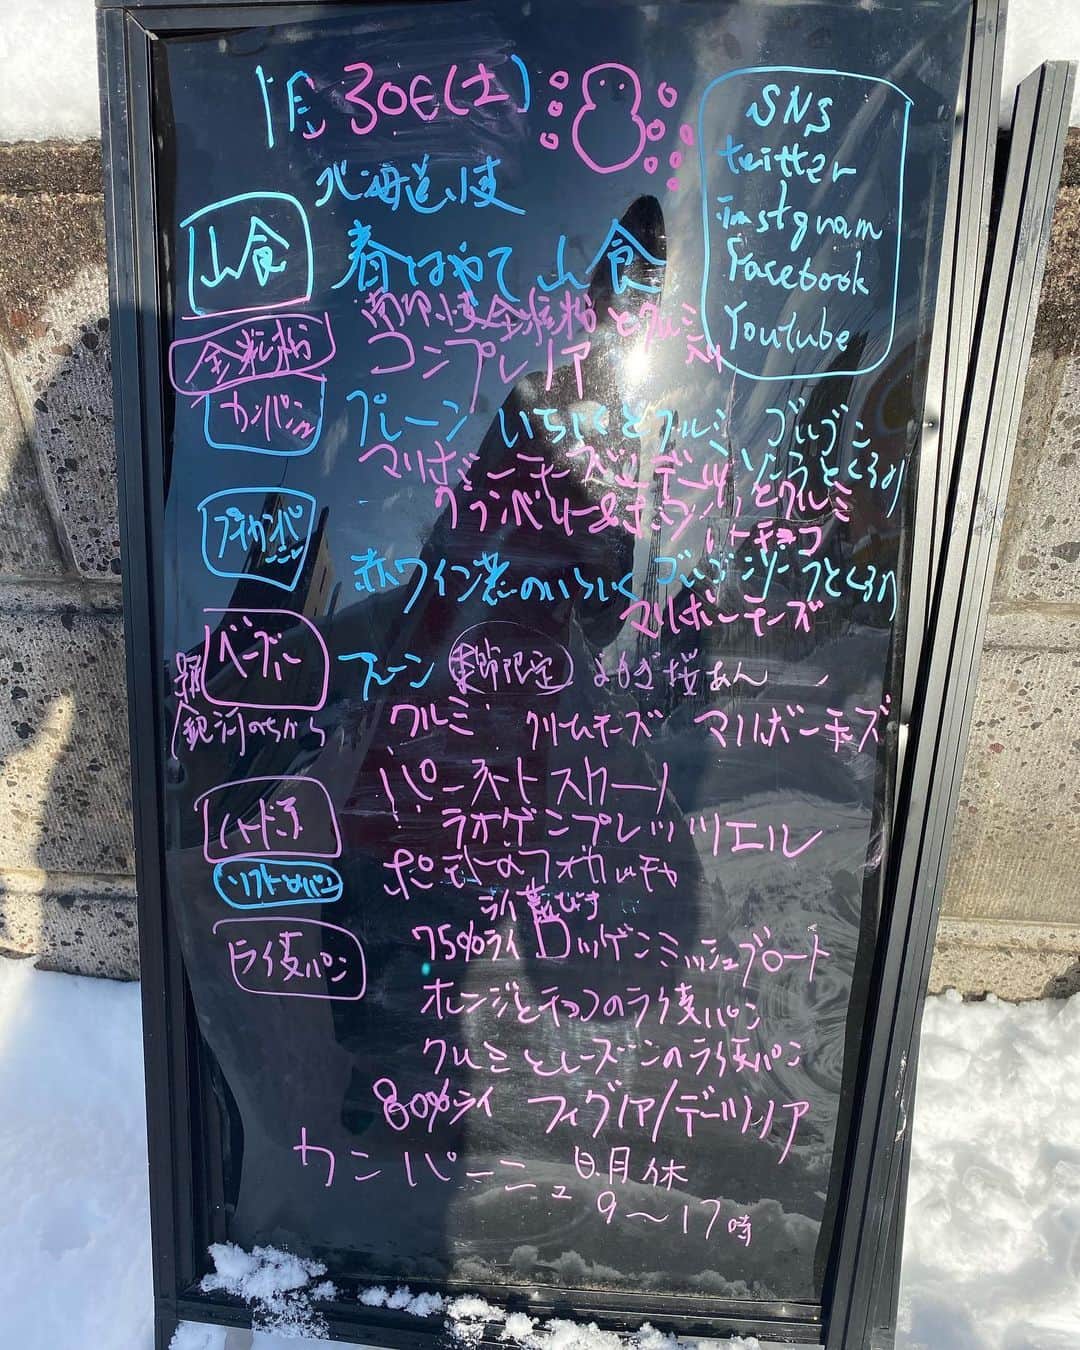 1月30日(土)
SNS
twitter
instgram
Facebook
Youtube
北海道小麦
山食
春はやて 山食
全粒粉
南部小麦全粒粉とクルミ
コンプレノア
カンパニュ
プレーン いちじくとクルミ ゴルゴン
マリボーチーズ デーツ ゾーラとくるみ
クランベリー&ホワイト とクルミ
チョコ
プチカンパーニュ
赤ワイン煮のいちじく ゴルゴンゾーラとくるみ
マリボーチーズ
ベーグル
プレーン 季節限定 よもぎ桜あん
銀河のちから
クルミ クリームチーズ マリボーチーズ
パーネトスカーノ
ハード系
ラオゲンプレッツェル
ソフトのパン
ポテトのフォカッチャ
ライ麦パン
75%ライ ロッゲンミッシュブロート
オレンジとチョコのライ麦パン
クルミとレーズンのライ麦パン
80%ライ フィグノア/デーツノア
カンパーニュ 日.月休
9〜17時